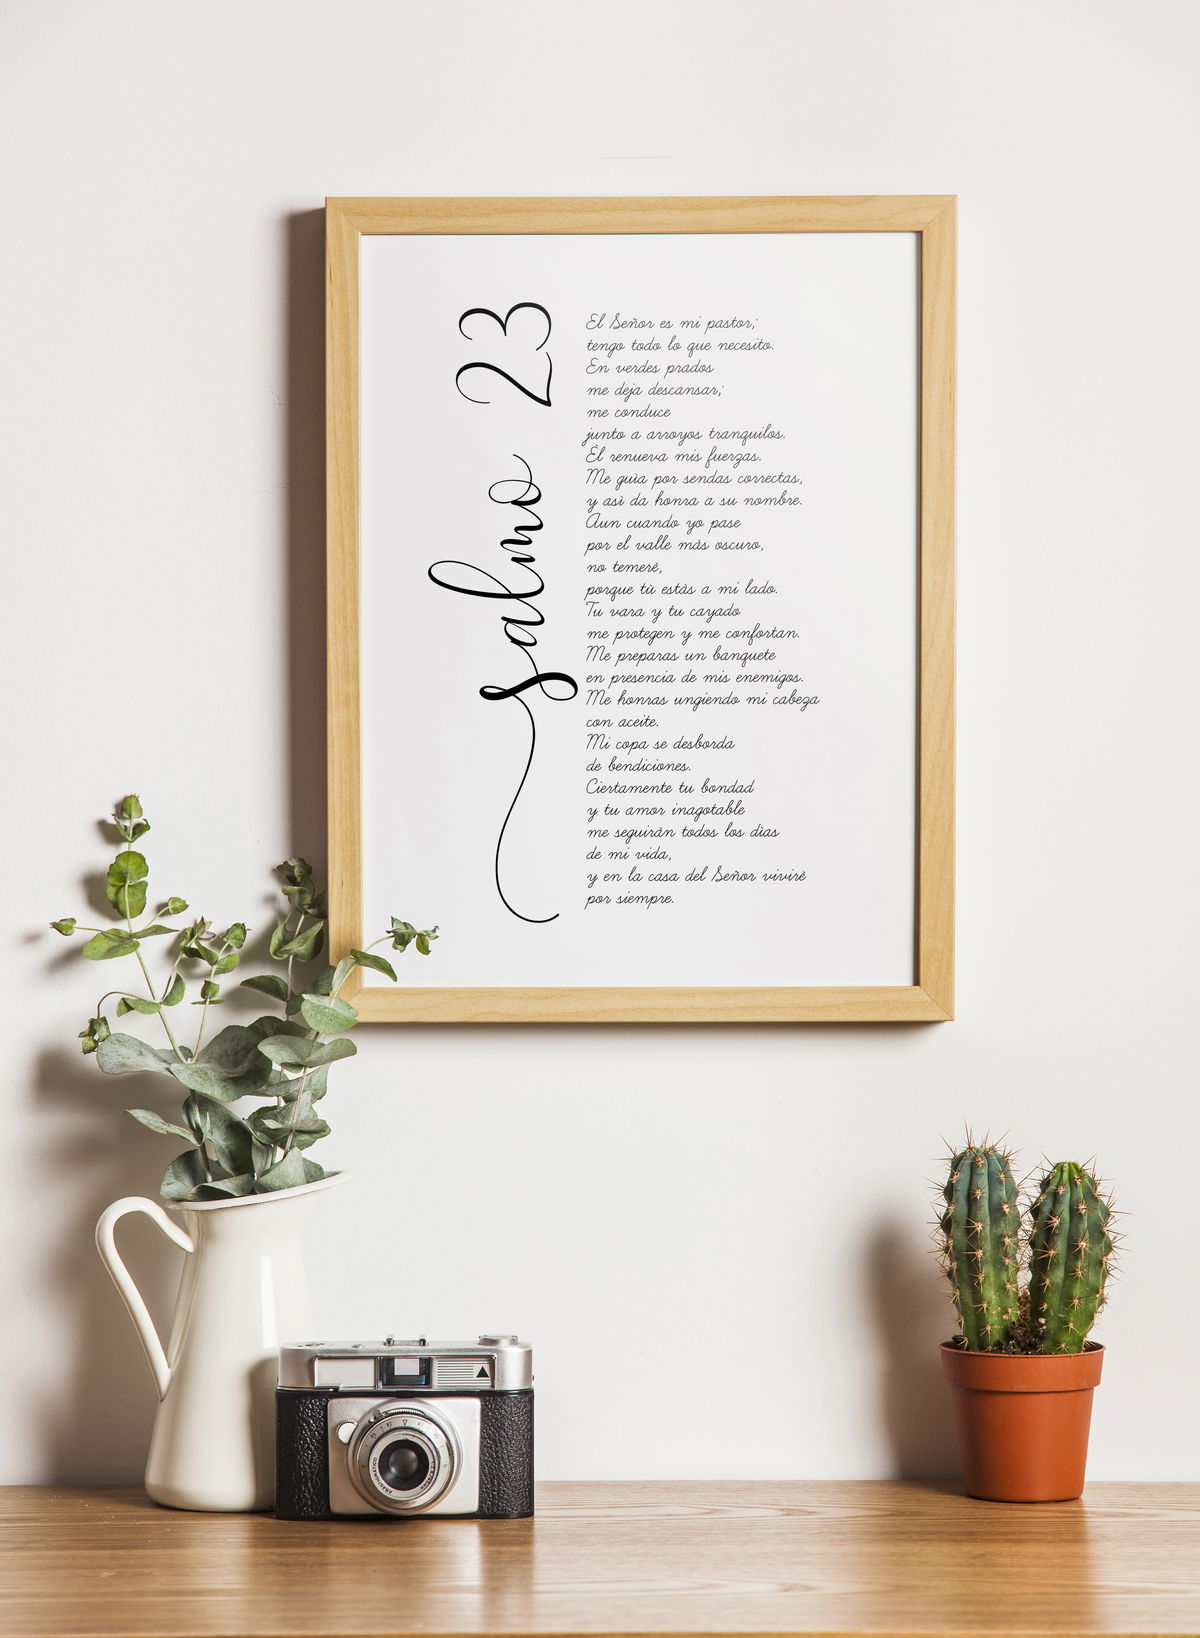 salmo 23
El Señor es mi pastor;
tengo todo lo que necesito.
En verdes prados
me deja descansar;
me conduce
junto a arroyos tranquilos.
Él renueva mis fuerzas.
Me guía por sendas correctas,
y así da honra a su nombre.
Aun cuando yo pase
por el valle más oscuro,
no temeré,
porque tú estás a mi lado.
Tu vara y tu cayado
me protegen y me confortan.
Me preparas un banquete
en presencia de mis enemigos.
Me honras ungiendo mi cabeza
con aceite.
Mi copa se desborda
de bendiciones.
Ciertamente tu bondad
y tu amor inagotable
me seguirán todos los días
de mi vida,
y en la casa del Señor viviré
por siempre.